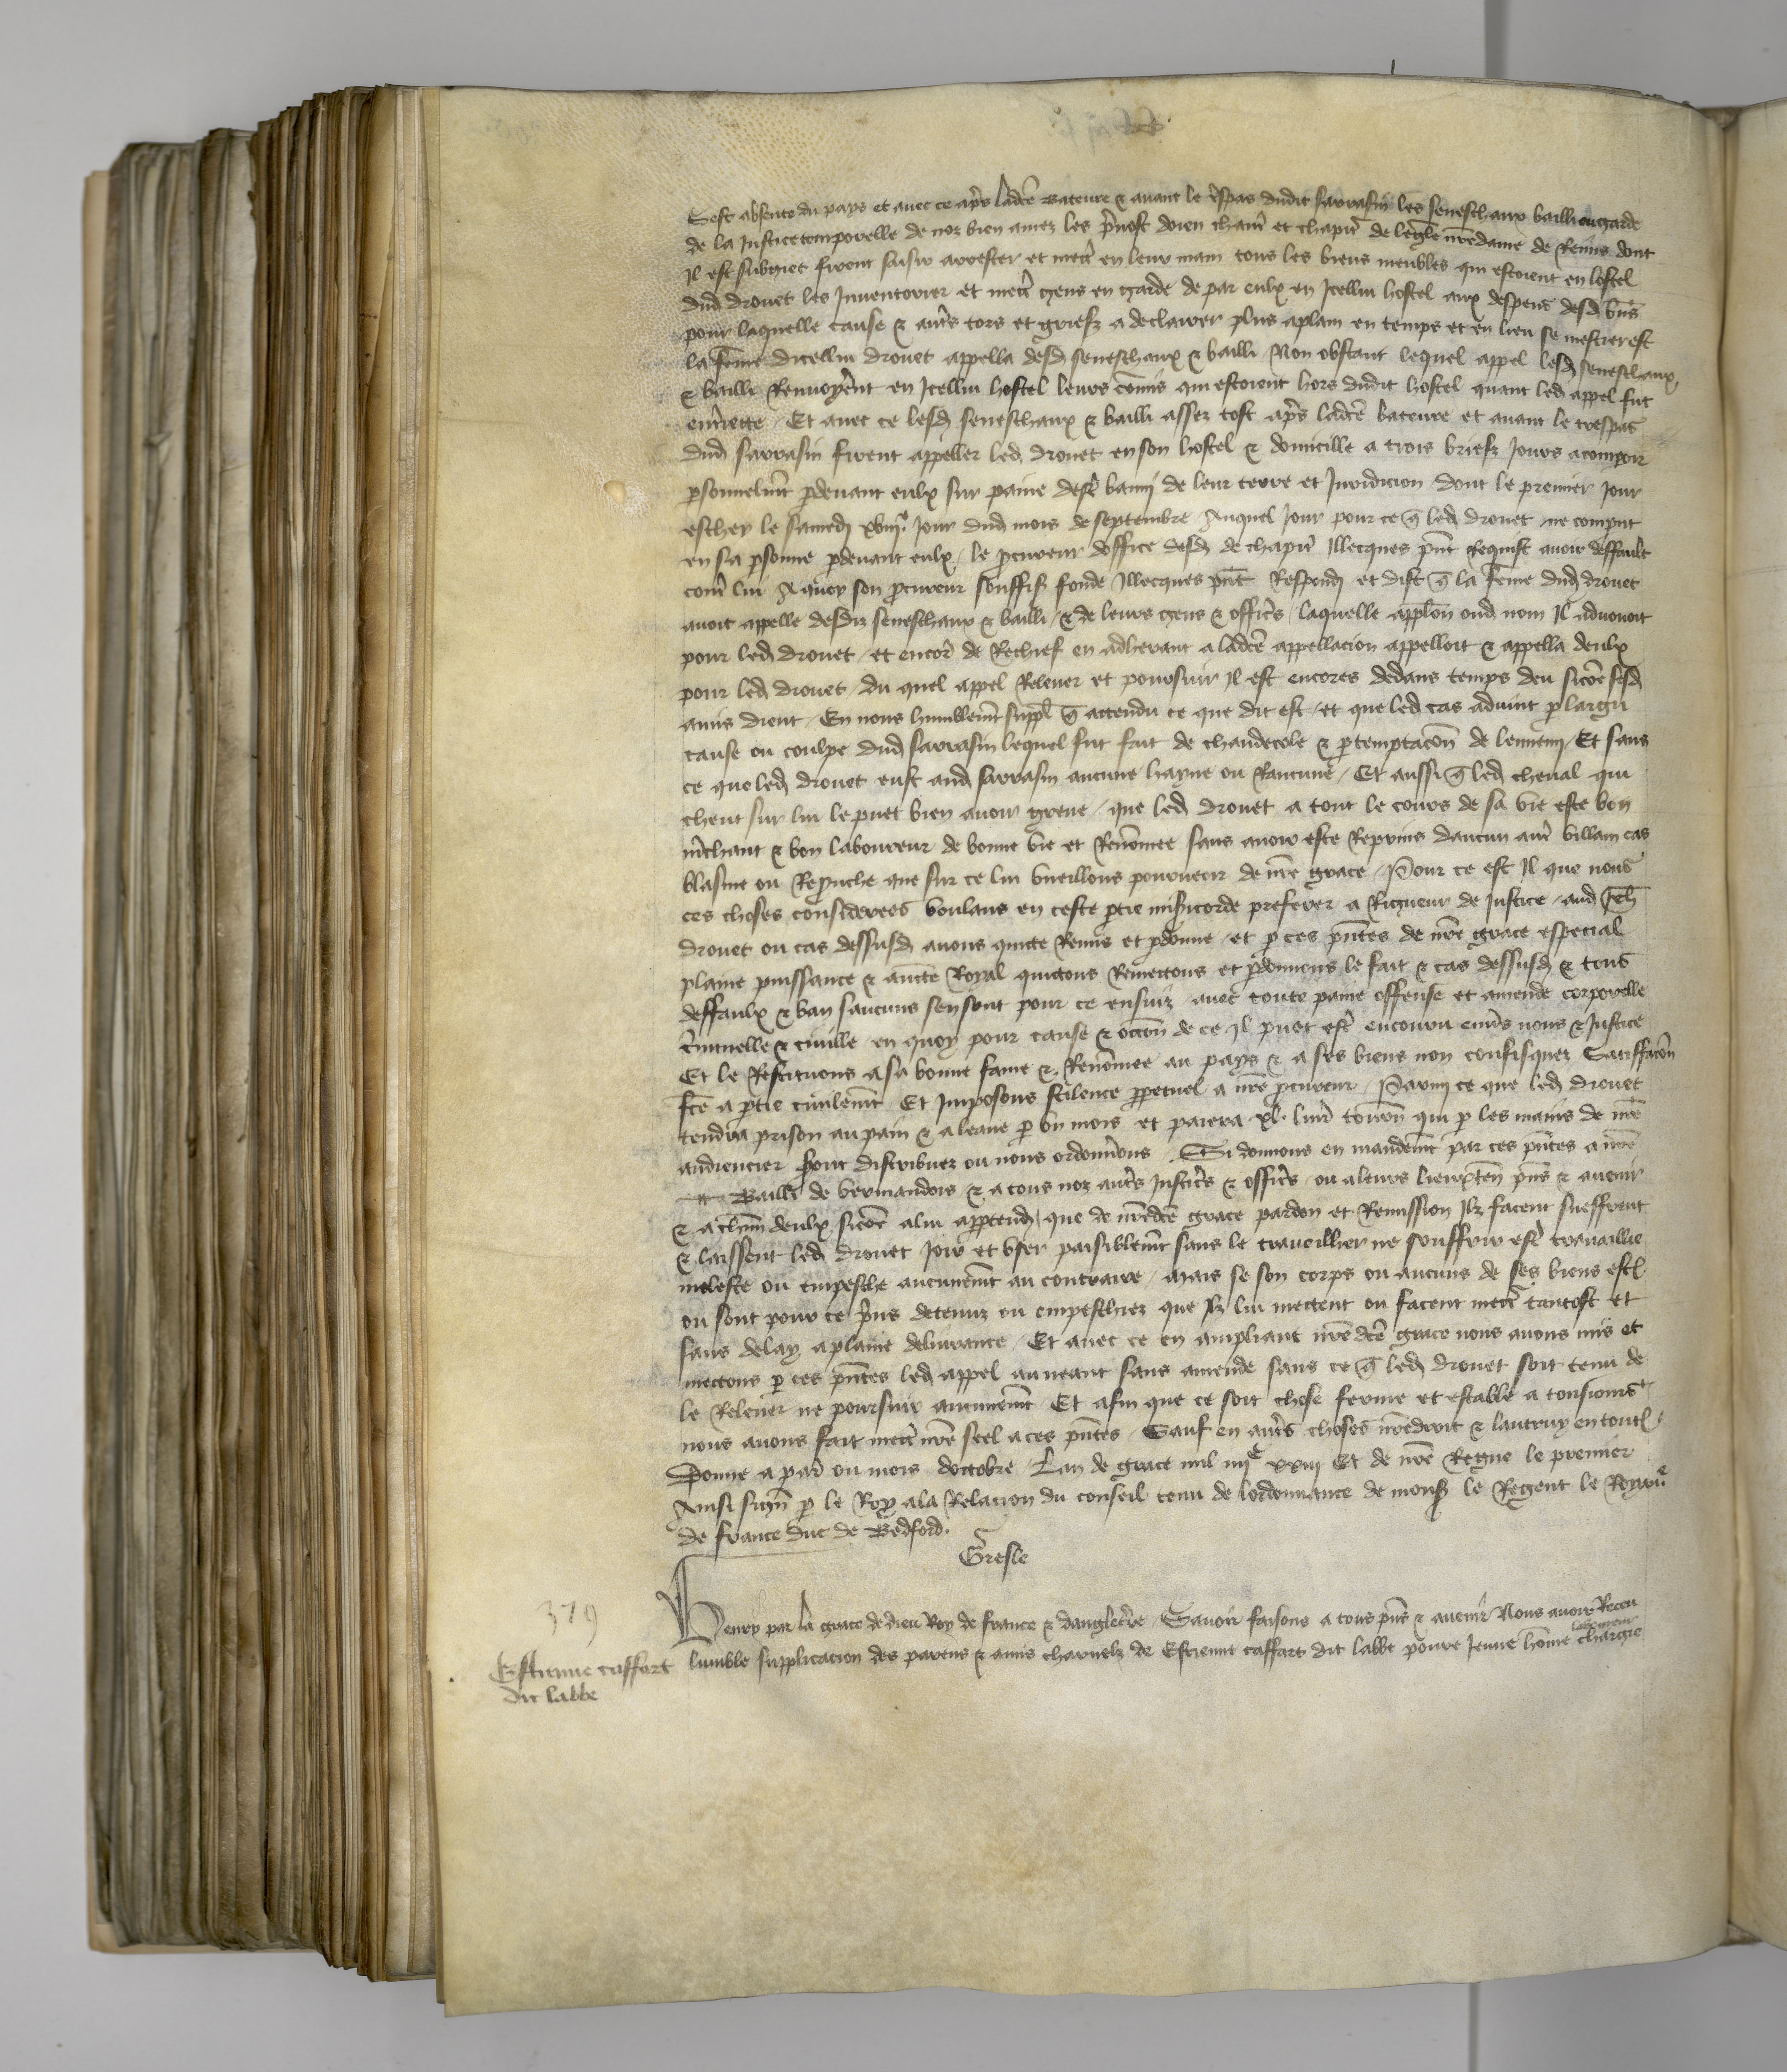 Sest absente du pays et avec ce apres ladce bateure & avant le tspas dudit sarrasin les seneschaux bailli ou garde
de la Justice temporelle de noz bien amez les pvost doien chant et chapit de legle nredame de Reins dont
Il est subgiet firent saisir arrester et mett en leur main tous les biens meubles qui estoient en lostel
dud drouet les Inventorier et mett gens en garde de par eulx en Icellui hostel aux despens desd biens
pour laquelle cause & autres tors et griefz a declairer plus aplain en temps et en lieu se mestier est
la feme dicellui drouet appella desd seneschaux & bailli Non obstant lequel appel lesd seneschaux
& bailli Renvoyerent en Icellui hostel leurs comis qui estoient hors dudit hostel quant led appel fut
Et avec ce lesd seneschaux & bailli assez tost apres ladce bateure et avant le trespas
dud sarrasin firent appeller led drouet en son hostel & domicille a trois briefz Jours a comparoir
psonnelmt pdevant eulx sur paine destre banny de leur terre et Juridicion dont le premier Jour
eschey le samedi xviiie Jour dud mois de septembre Auquel Jour pour ce q led drouet ne comput
en sa psonne pdevant eulx le pcureur doffice desd de chapit Illecques pnt Requist avoir deffault
cont lui A quoy son pcureur souffis fonde Illecques pnt Respondi et dist q la feme dud drouet
avoit appelle desdiz seneschaux & bailli & de leurs gens & offics laquelle applon oud nom Il advouoit
pour led drouet et encor de Rechief en adherant a ladce appellacion appelloit & appella deulx
pour led drouet du quel appel Relever et poursuir Il est encores dedans temps deu sicome sesd
amis dient En nous humblemt suppl q attendu ce que dit est et que led cas advint p largu
cause ou coulpe dud sarrasin lequel fut fait de chaudecole & p temptacon de lennemy Et sans
ce que led drouet eust aud sarrasin aucune hayne ou Rancune Et aussi q led cheval qui
cheut sur lui le puet bien avoir greve que led drouet a tout le cours de sa vie este bon
mchant & bon laboureur de bonne vie et Renomee sans avoir este Reprins daucun aut villain cas
blasme ou Reprouche que sur ce lui vueillons pourveoir de nre grace Pour ce est Il que nous
ces choses considerees voulans en ceste ptie misicorde preferer a Rigueur de Justice aud
drouet ou cas dessusd avons quitte Remis et pdonne et p ces pntes de nre grace especial
plaine puissance & aucte Royal quictons Remettons et pdonnons le fait & cas dessusd & tous
deffaulx & ban saucuns sen sont pour ce ensuiz avec toute paine offense et amende corporelle
criminelle & civille en quoy pour cause & occon de ce Il puet est encouru envs nous & Justice
Et le Restituons a sa bonne fame & Renomee au pays & a ses biens non confisquez Satisfacon
fce a ptie civilemt Et Imposons scilence ppetuel a nre pcureur Parmy ce que led drouet
tendra prison au pain & a leaue p un mois et paiera xl livr tourn qui p les mains de nre
audiencier seront distribuez ou nous ordonnons Si donnons en mandemt par ces pntes a nre
Bailli de vermandois & a tous noz autres Justics & offics ou a leurs lieuxten pns & avenir
& a chun deulx sicome a lui apptendra que de nredce grace pardon et Remission Ilz facent sueffrent
& laissent led drouet Joir et user paisiblemt sans le traveillier ne souffrir est travaillie
moleste ou empesche aucunemt au contraire Mais se son corps ou aucuns de ses biens est
ou sont pour ce pns detenuz ou empeschez que Ilz lui mettent ou facent mett tantost et
sans delay a plaine delivrance Et avec ce en ampliant nredce grace nous avons mis et
mettons p ces pntes led appel au neant sans amende sans ce q led drouet soit tenu de
le Relever ne poursuir aucunemt Et afin que ce soit chose ferme et estable a tousiours
nous avons fait mett nre seel a ces pntes Sauf en autres choses nredroit & lautruy en tout
Donne a paris ou mois doctobre Lan de grace mil iiiic xxiii Et de nre Regne le premier
Ainsi sign p le Roy a la Relacion du conseil tenu de lordonnance de mons le Regent le Royaue
de france duc de Bedford
Gresle
379
Henry par la grace de dieu Roy de france & dangleterre Savoir faisons a tous pns & avenir Nous avoir Receu
lumble supplicacion des parens & amis charnelz de Estienne caffart dit labbe povre Jeune home laboureur chargie
Estienne caffart
dit labbe